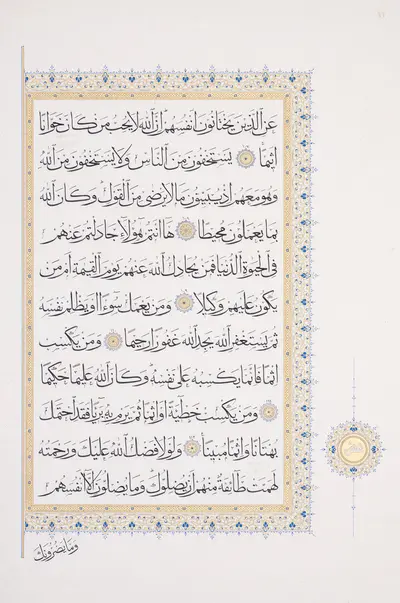 عن الذين يختانون أنفسهم إن الله لا يحب من كان خوانا
أثيما يستخفون من الناس ولا يستخفون من الله
وهو معهم إذ يبيتون ما لا يرضى من القول وكان الله
بما يعملون محيطا هأنتم هؤلاء جادلتم عنهم
في الحيوة الدنيا فمن يجادل الله عنهم يوم القيمة أم من
يكون عليهم وكيلا ومن يعمل سوءا أو يظلم نفسه
ثم يستغفر الله يجد الله غفورا رحيما ومن يكسب
إثما فإنما يكسبه على نفسه وكان الله عليما حكيما
ومن يكسب خطيئة أو إثما ثم يرم به بريئا فقد احتمل
بهتانا وإثما مبينا ولولا فضل الله عليك ورحمته
لهمت طائفة منهم أن يضلوك وما يضلون إلا أنفسهم
وما يضرونك